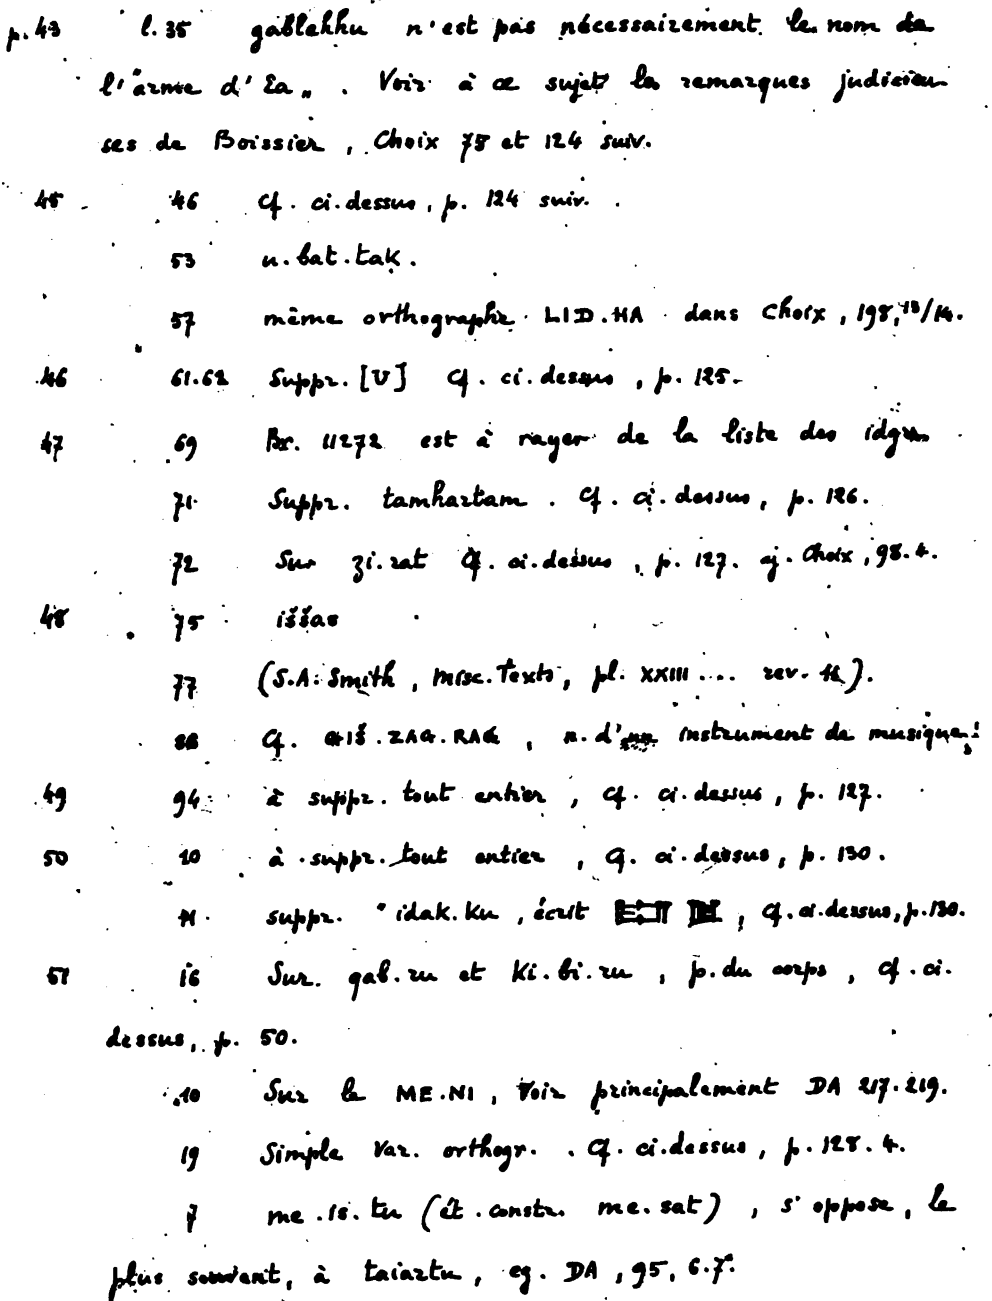 p. 43 l. 35 gablahhu n'est pas nécessairement le nom de
l'"arme d'Ea„. Voir à ce sujet les remarques judicieu
ses de Boissier, Choix 75 et 124 suiv.
45 46 Cf. ci-dessus, p. 124 suiv.
53 u.bat.tak.
57 même orthographe LID.HA dans Choix, 198, 13/14.
46 61.62 Suppr. [U] Cf. ci.dessus, p. 125.
47 69 Br. 11272 est à rayer de la liste des idgr.
71 Suppr. tamhartam. Cf. ci.dessus, p. 126.
72 Sur zi.rat Cf. ci.dessus, p. 127. aj. Choix, 98.4.
48 75 iššas
77 (S.A. Smith, Misc. Texts, pl. XXIII .... rev. 14).
88 Cf. GIŠ.ZAG.RAG, n. d'un instrument de musique!
49 94 à suppr. tout entier, cf. ci.dessus, p. 127.
50 10 à suppr. tout entier, cf. ci.dessus, p. 130.
11. suppr. " idak.Ku, écrit , cf. ci.dessus, p. 130.
51 16 Sur. gab.ru et Ki.bi.ru, p. du corps, cf. ci.
dessus, p. 50.
10 Sur le ME.NI, Voir principalement DA 217.219.
19 Simple Var. orthogr. Cf. ci.dessus, p. 128.4.
7 me.is.tu (ét. constr. me.sat), s'oppose, le
plus souvent, à taiartu, eg. DA, 95, 6.7.